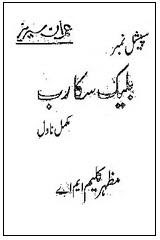 عمران سیریز
سپیشل نمبر
بلیک سکارب
مکمل ناول
مظہر کلیم ایم اے